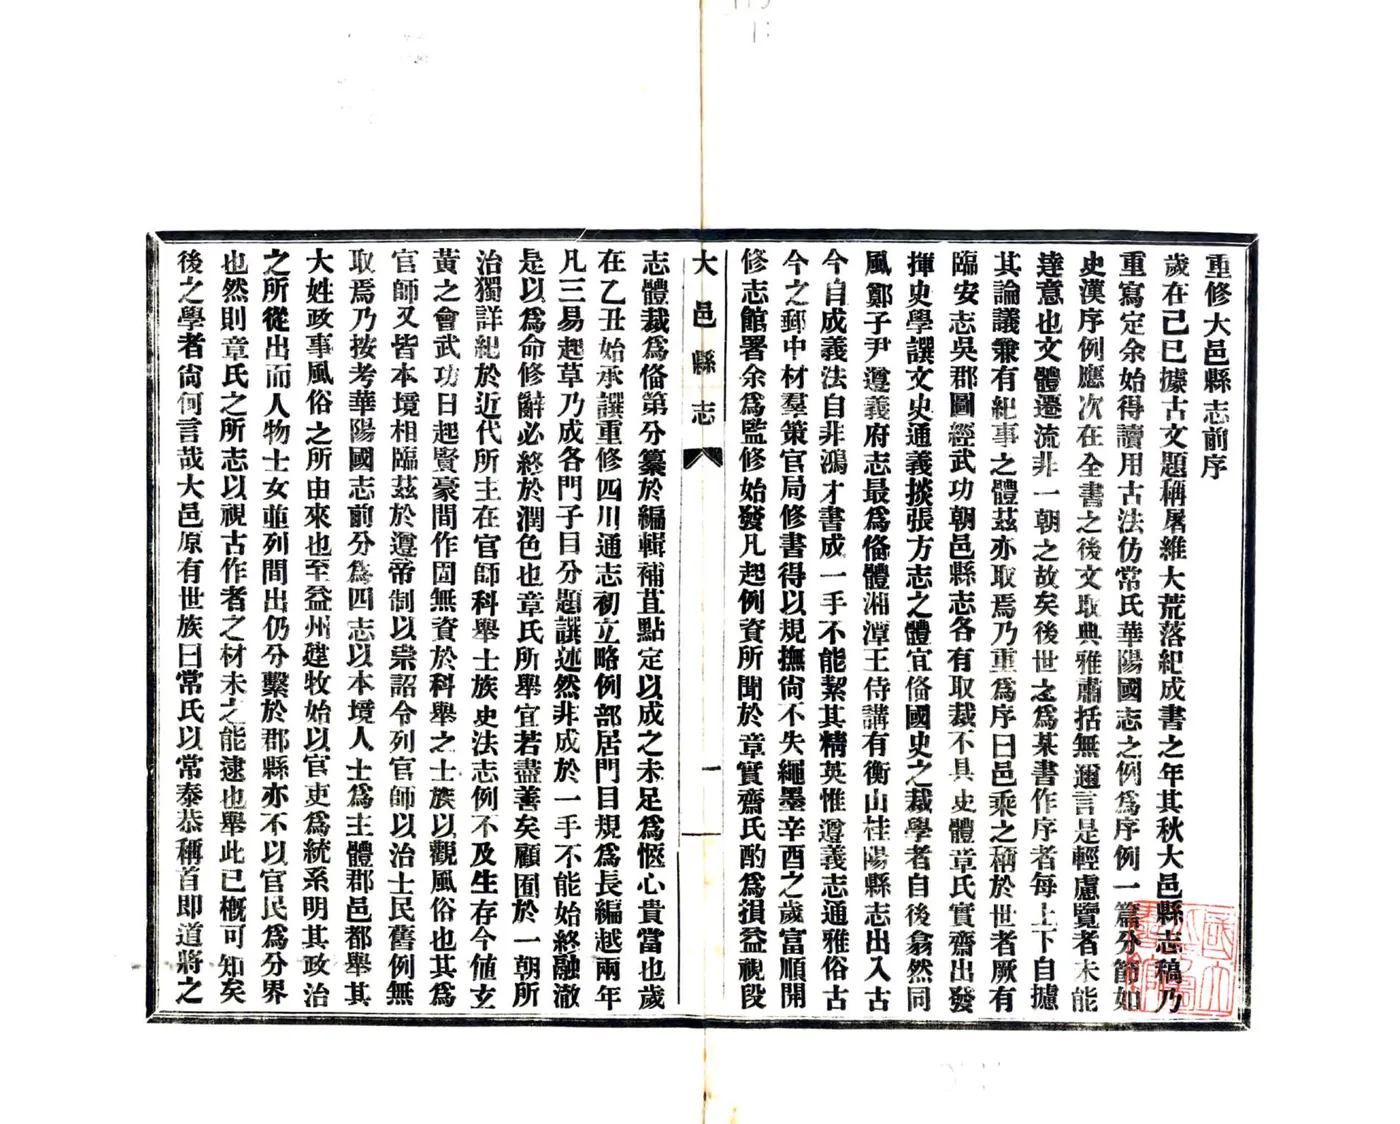 重修大邑縣志前序
歲在己巳據古文題稱屠維大荒落紀成書之年其秋大邑縣志稿乃
重寫定余始得讀用古法仿常氏華陽國志之例爲序例一篇分節如
史漢序例應次在全書之後文取典雅肅括無邇言是輕慮覽者未能
達意也文體遷流非一朝之故矣後世之爲某書作序者每上下自據
其論議兼有紀事之體茲亦取焉乃重爲序曰邑乘之稱於世者厥有
臨安志吳郡圖經武功朝邑縣志各有取裁不具史體章氏實齋出發
揮史學譔文史通義掞張方志之體宜俻國史之裁學者自後翕然同
風鄭子尹遵義府志最爲俻體湘潭王侍講有衡山桂陽縣志出入古
今自成義法自非鴻才書成一手不能絜其精英惟遵義志通雅俗古
今之郵中材羣策官局修書得以規撫尙不失繩墨辛酉之歲富順開
修志館署余爲監修始發凡起例資所聞於章實齋氏酌爲損益視段
大邑縣志
一
志體裁爲俻第分纂於編輯補苴點定以成之未足爲愜心貴當也歲
在乙丑始承譔重修四川通志初立略例部居門目規爲長編越兩年
凡三易起草乃成各門子目分題譔述然非成於一手不能始終融澈
是以爲命修辭必終於潤色也章氏所舉宜若盡善矣顧囿於一朝所
治獨詳紀於近代所主在官師科舉士族史法志例不及生存今値玄
黃之會武功日起賢豪間作固無資於科舉之士族以觀風俗也其爲
官師又皆本境相臨茲於遵帝制以崇詔令列官師以治士民舊例無
取焉乃按考華陽國志前分爲四志以本境人士爲主體郡邑都舉其
大姓政事風俗之所由來也至益州建牧始以官吏爲統系明其政治
之所從出而人物士女並列間出仍分繫於郡縣亦不以官民爲分界
也然則章氏之所志以視古作者之材未之能逮也舉此已槪可知矣
後之學者尙何言哉大邑原有世族曰常氏以常泰恭稱首即道將之